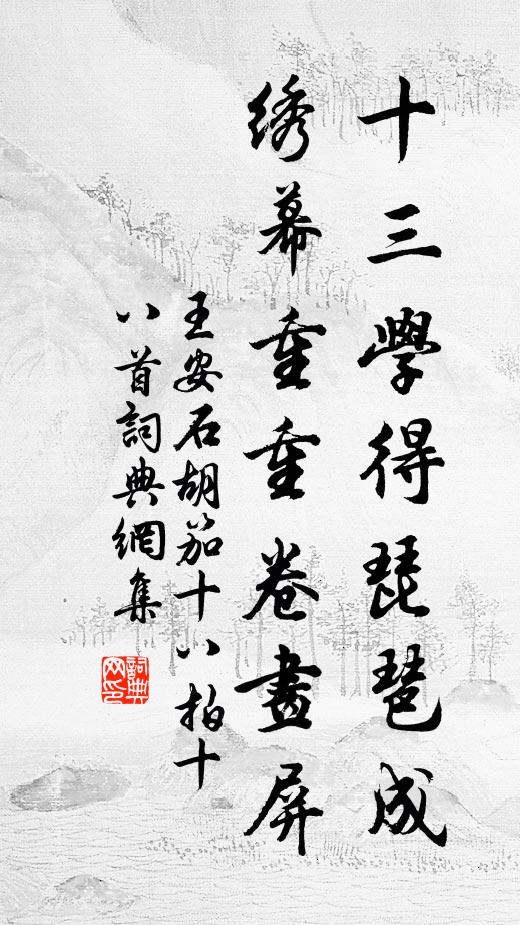 十三學得琵琶成
绣幕重重卷畫屏
王安石胡笳十八拍十
八首詞典網集
詞典網印